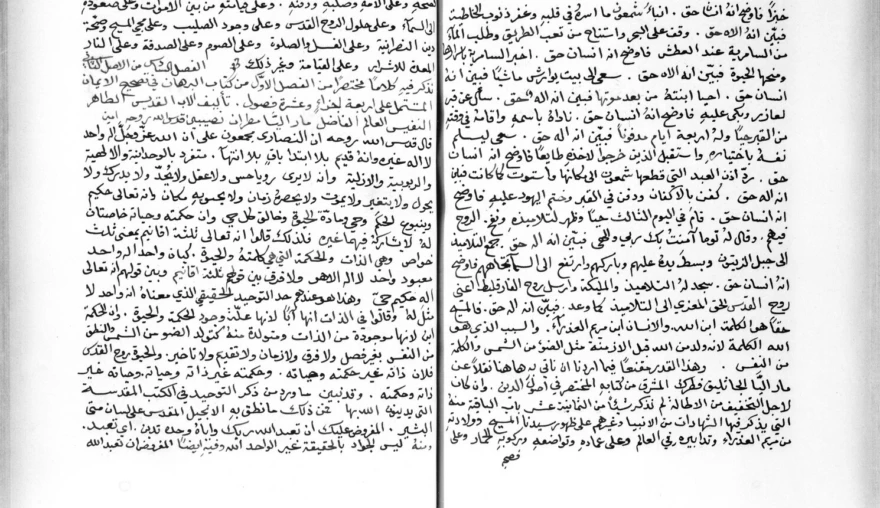 خبزًا فاوضح انه انسان حق . انباء شمعون ما اسره في قلبه وغفر ذنوب الخاطية
فبيّن انه الاه حق . وقف على البير واستراح من تعب الطريق وطلب الماء
من السامرية عند العطش فاوضح انه انسان حق . اخبر السامرية
ومنحها الحيوة فبيّن انه الاه حق . سعى الى بيت يوارش ماشيًا فبين انه
انسان حق . احيا ابنته من بعد موتها فبين انه اله حق . سأل عن قبر
لعازر وبكى عليه فاوضح انه انسان حق . ناداه باسمه واقامه
من القبر حيًا وله اربعة ايام مدفونًا فبيّن انه اله حق . سعى ليسلم
نفسه باختياره واستقبل الذين خرجوا لاخذه طايعًا فاوضح انه انسان
حق . ردّ اذن العبد التي قطعها شمعون الى مكانها واستوت كما كانت فبين
انه اله حق . كفن بالاكفان ودفن في القبر وختم اليهود عليه فاوضح
انه انسان حق . قام في اليوم الثالث حيًا وظهر لتلاميذه ونفخ الروح
فيهم . وقال له توما آمنت بك ربي والهي فبيّن انه اله حق . جمع التلاميذ
الى جبل الزيتون وبسط يده عليهم وباركهم وارتفع الى السما تجاههم فاوضح
انه انسان حق . سجد له التلاميذ والمليكة وارسل روح الفارقليط اعني
روح القدس الحق المعزي الى التلاميذ كما وعد . فبيّن انه اله حق . فالمسيح
حقًا هو الكلمة ابن الله والانسان ابن مريم العذراء . والسبب الذي هو
الله الكلمة لانه ولد من الله قبل الازمنة مثل الضوء من الشمس والكلمة
من النفس . وهذا القدر مقنعًا فيما اردنا ان ناتي به هاهنا نقلًا عن
مار اليا الجاثليق فطرك المشرق من كتابه المختصر في اصول الدين . وان كان
لاجل التخفيف من الاطالة لم نذكر شيًا من الثمانية عشر باب الباقية منه
التي يذكر فيها الشهادات من الانبيا وغيرهم على ظهور سيدنا المسيح وولادته
من مريم العذراء وتدابيره في العالم وعلى عماده وتواضعه وركوبه للحمار وعلى
فصحه
فصحه وعلى الامه وصلبه ودفنه . وعلى قيامته من بين الاموات وعلى صعوده
الى السماء وعلى حلول الروح القدس وعلى وجود الصليب وعلى مجي المسيح وصحة
دين النصرانية وعلى الغسل والصلوة وعلى الصوم وعلى الصدقة وعلى النار
المعدة للاشرار وعلى القيامة وغير ذلك الفصل الثاني من الاصل الثاني
نذكر فيه كلامًا مختصرًا من الفصل الاوّل من كتاب البرهان في تصحيح الايمان
المشتمل على اربعة اجزاء وعشرة فصول . تأليف الاب القديس الطاهر
النفيس العالم الفاضل مار اليا مطران نصيبين قدس الله روحه امين
قال قدس الله روحه ان النصارى مجمعون على ان الله عزّ وجلّ اله واحد
لا اله غيره وانه قديم بلا ابتدا باقٍ بلا انتها . متفرد بالوحدانية والالهية
والربوبية والازلية وان لا يرى ولا يحس ولا يعقل ولا يُحدّ ولا يدرك ولا
يحول ولا يتغير ولا يموت ولا يحصره زمان ولا يحويه مكان وانه تعالى حكيم
وينبوع الحكم وحي ومادة الحيوة وخالق كل حي وان حكمته وحياته خاصتان
له لا يشاركه فيهما غيره فلذلك قالوا انه تعالى ثلثة اقانيم بمعنى ثلث
خواص وهي الذات والحكمة التي هي كلمته والحيوة . كيان واحد اله واحد
معبود واحد لا اله الا هو ولا فرق بين قولهم ثلثة اقانيم وبين قولهم انه تعالى
اله حكيم حيّ وهذا هو عندهم حد التوحيد الحقيقي الذي معناه انه واحد لا
مثل له وقالوا في الذات انها أبًا لانها علة وجود الحكمة والحيوة . وان الحكمة
ابن لانها موجودة من الذات ومتولدة منه كتولد الضو من الشمس والنطق
من النفس بغير فصل ولا فرق ولا زمان ولا تقديم ولا تاخير . والحيوة روح القدس
فلان ذاته غير حكمته وحياته . وحكمته غير ذاته وحياته وحياته غير
ذاته وحكمته . وقد تبين ما ورد من ذكر التوحيد في الكتب المقدسة
التي يدينون الله بها فمن ذلك ما نطق به الانجيل المقدس على لسان متى
البشير . المفروض عليك ان تعبد الله ربك واياه وحده تدين . اي تعبد .
ومنه ليس الجواد بالحقيقة غير الواحد الله وفيه ايضًا المفروض ان تعبد الله